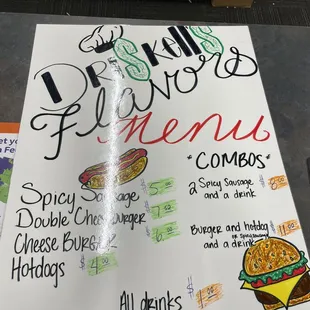 DrisKell's
Flavors
Menu
"COMBOS"
Spicy Sausage $5.00
Double Cheeseburger $7.00
Cheese Burger $6.00
Hotdogs $4.00
2 Spicy Sausage $8.00
and a drink
Burger and hotdog
or Spicy Sausage
and a drink $11.00
All drinks